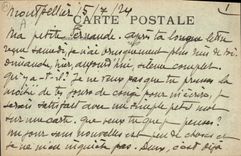 Montpellier 15/7/24
CARTE POSTALE
1
Ma petite Fernande. après ta longue lettre
reçue samedi, je n'ai
dimanche, hier aujourd'hui, silence complet.
qu'y a-t-il? Je ne veux pas que tu prennes la
moitié de tes jours de congé pour m'écrire, je
serais satisfait avec un simple petit mot
sur une carte, que veux-tu que je pense?
un jour sans nouvelles est un de choses et
je ne m'en inquiète pas. Deux, c'est déjà